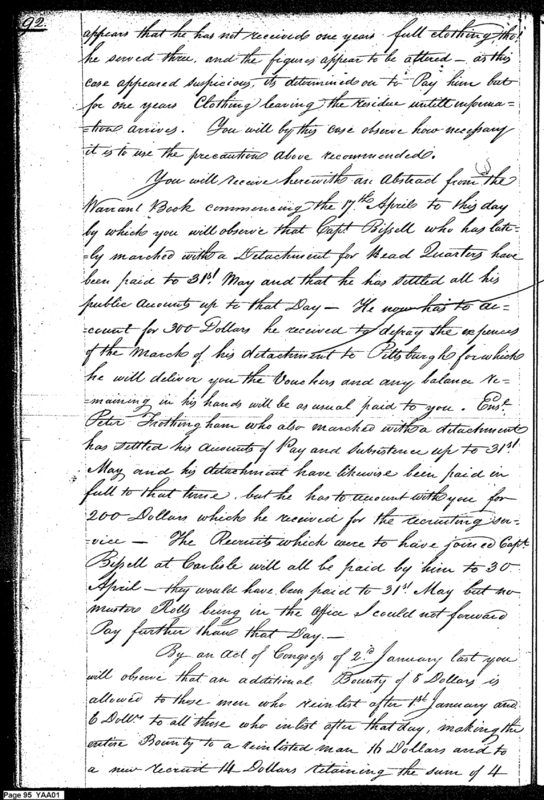 92
appears that he has not received one years full clothing tho'
he served three, and the figures appear to be altered — as this
case appeared suspicious, its determined on to Pay him but
for one years Clothing leaving the residue untill informa-
-tion arrives. You will by this case observe how necessary
it is to use the precaution above recommended.
You will receive herewith an Abstract from the
Warrant Book commencing the 17th April to this day
by which you will observe that Capt Bissell who has late-
-ly marched with a Detachment for Head Quarters have
been paid to 31st May and that he has settled all his
public accounts up to that Day — He now has to ac-
-count for 300 Dollars he received to defray the expences
of the March of his detachment to Pittsburgh for which
he will deliver you the Vouchers and any balance re-
-maining in his hands will be as usual paid to you. Ensn.
Peter Frothingham who also marched with a detachment
has settled his accounts of Pay and subsistence up to 31st
May and his detachment have likewise been paid in
full to that time. but he has to account with you for
200 Dollars which he received for the recruiting ser-
-vice — The Recruits which were to have joined Capt.
Bissell at Carlisle will all be paid by him to 30
April — they would have been paid to 31st May but no
musters Rolls being in the office I could not forward
Pay further than that Day. —
By an act of Congress of 2.d January last you
will observe that an additional Bounty of 8 Dollars is
allowed to those men who reinlist after 1st January and
6 Dollrs to all those who inlist after that day, making the
entire Bounty to a reinlisted man 16 Dollars and to
a new recruit 14 Dollars retaining the sum of 4
Page 95 YAA01